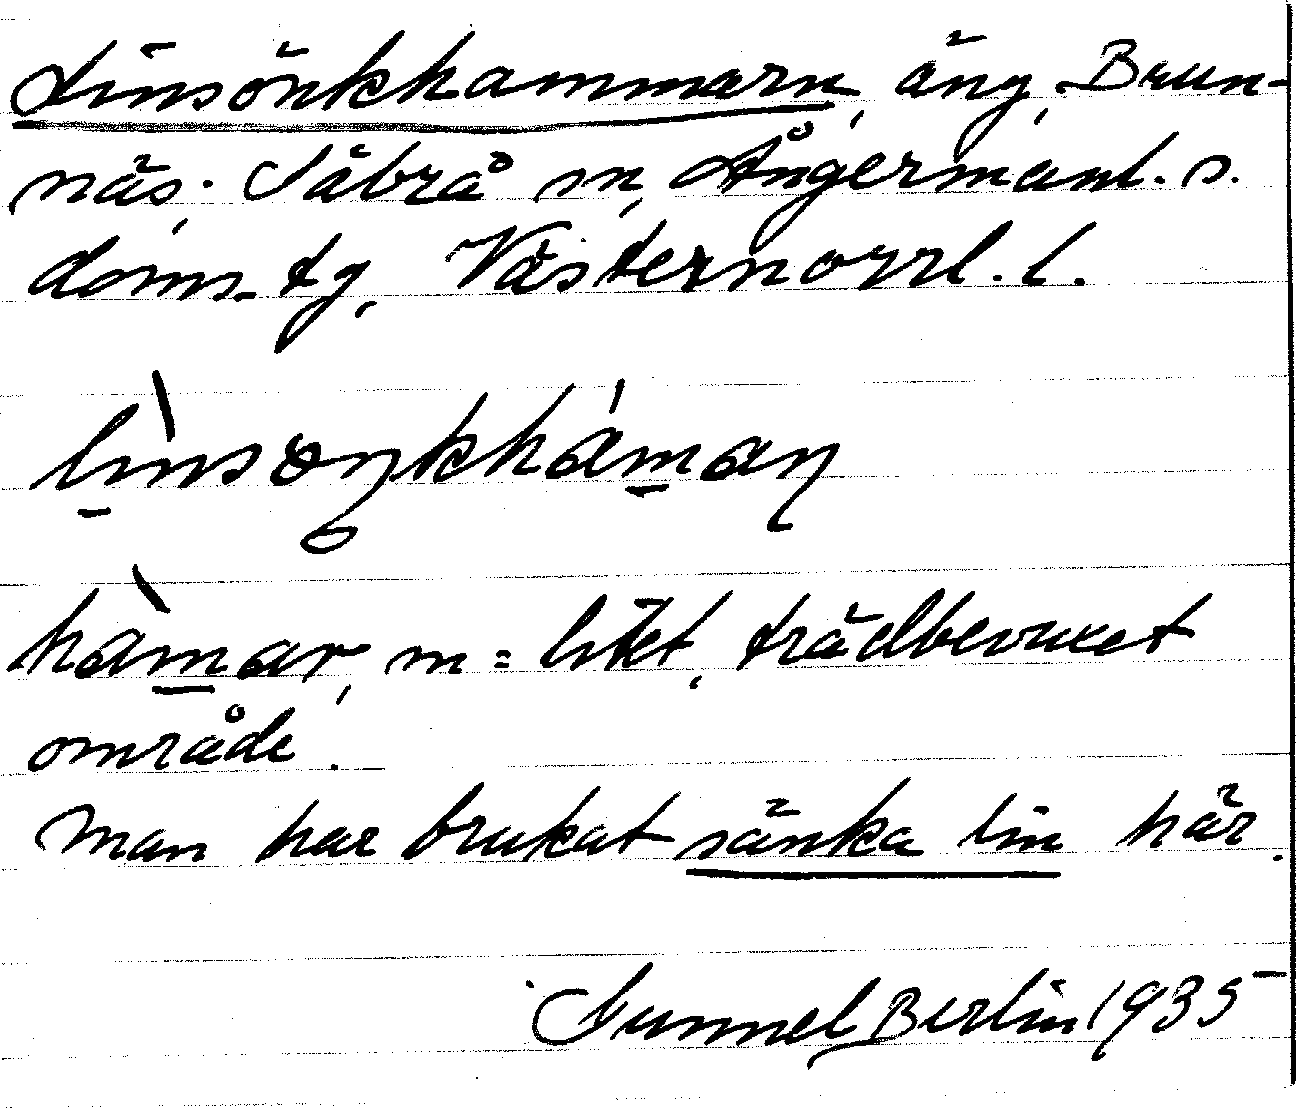 Linsönkhammarn, äng, Brun-
näs; Säbrå sn, Ångermanl. s.
doms. tg, Västernorrl. l.
lìnsoŋkháman
hàmar, m = litet, trädbevuxet
område.
Man har brukat sänka lin här.
Gunnel Berlin 1935